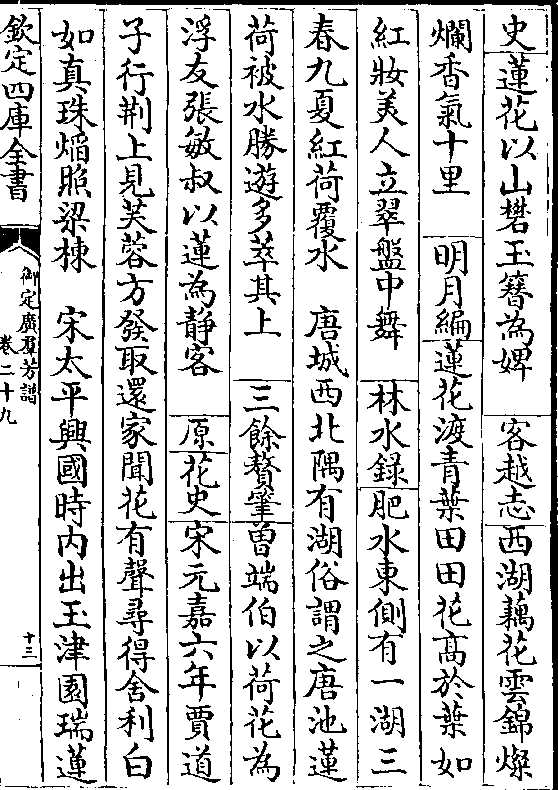 史蓮花以山礬玉簪為婢　客越志西湖藕花雲錦燦
爛香氣十里　明月編蓮花渡青葉田田花髙於葉如
紅妝美人立翠盤中舞　林水録肥水東側有一湖三
春九夏紅荷覆水　唐城西北隅有湖俗謂之唐池蓮
荷被水勝遊多萃其上　三餘贅筆曽端伯以荷花為
浮友張敏叔以蓮為靜客　原花史宋元嘉六年賈道
子行荆上見芙蓉方發取還家聞花有聲尋得舍利白
如真珠熖照梁棟　宋太平興國時内出玉津園瑞蓮
欽定四庫全書
御定廣羣芳譜
卷二十九
十三